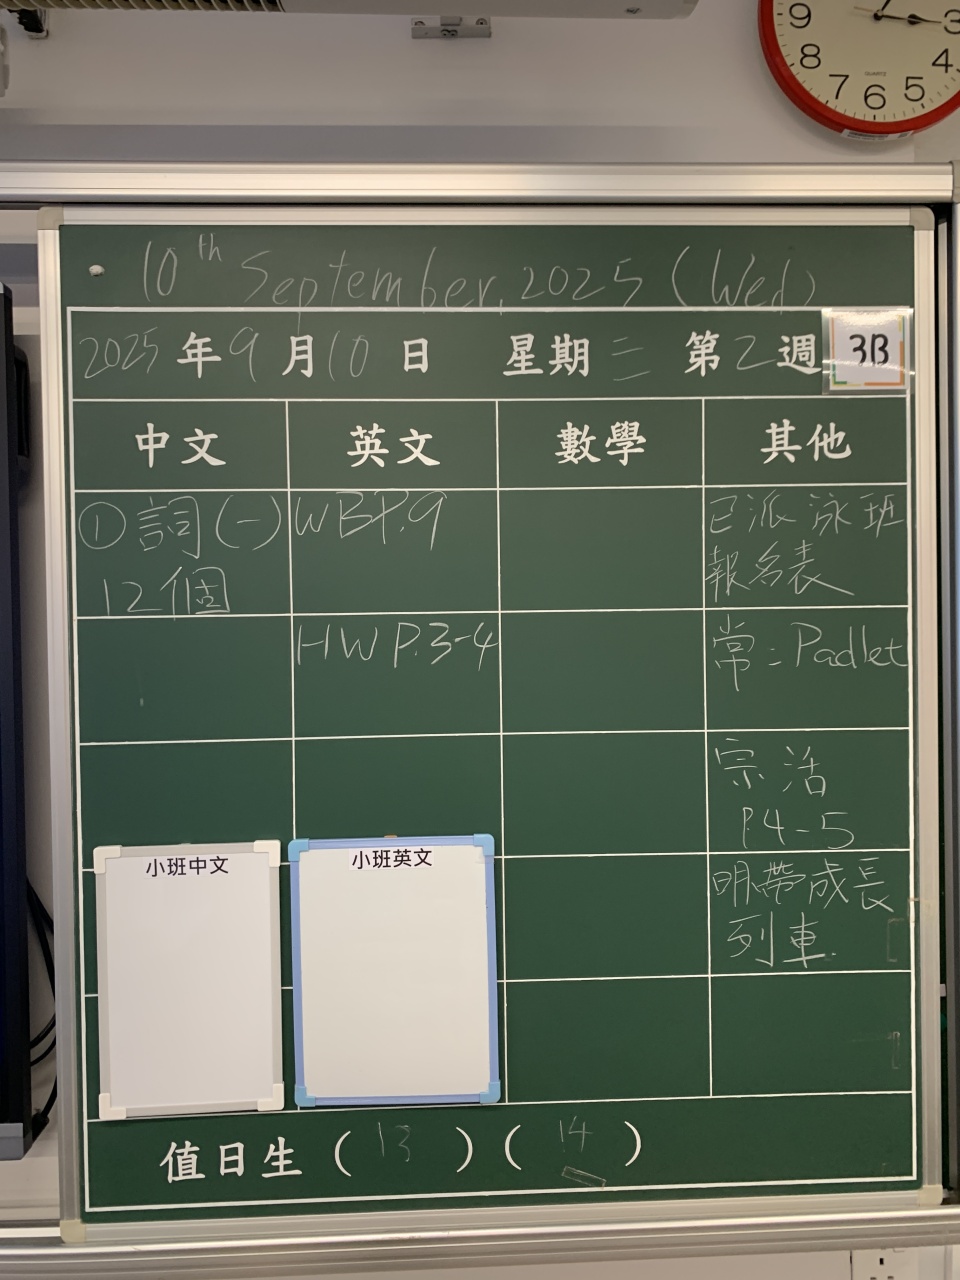 9
3
8
4
7
5
6
QUARTZ
10th September, 2025 (Wed)
2025 年 9 月 10 日 星期 三 第 2 週 3B
中文 英文 數學 其他
① 詞(一)
12個
WB P.9
已派泳班
報名表
HW P.3-4
常：Padlet
宗活
P.4-5
明帶成長
列車
小班中文
小班英文
值日生 ( 13 ) ( 14 )